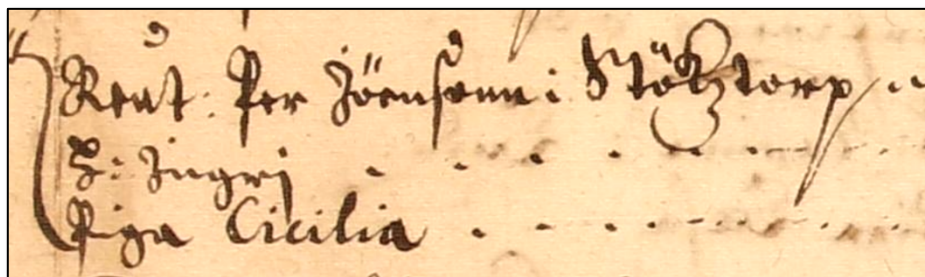 Rent. Per Jöensonn i Stöltztorp
H: Ingri
Piga Cicilia